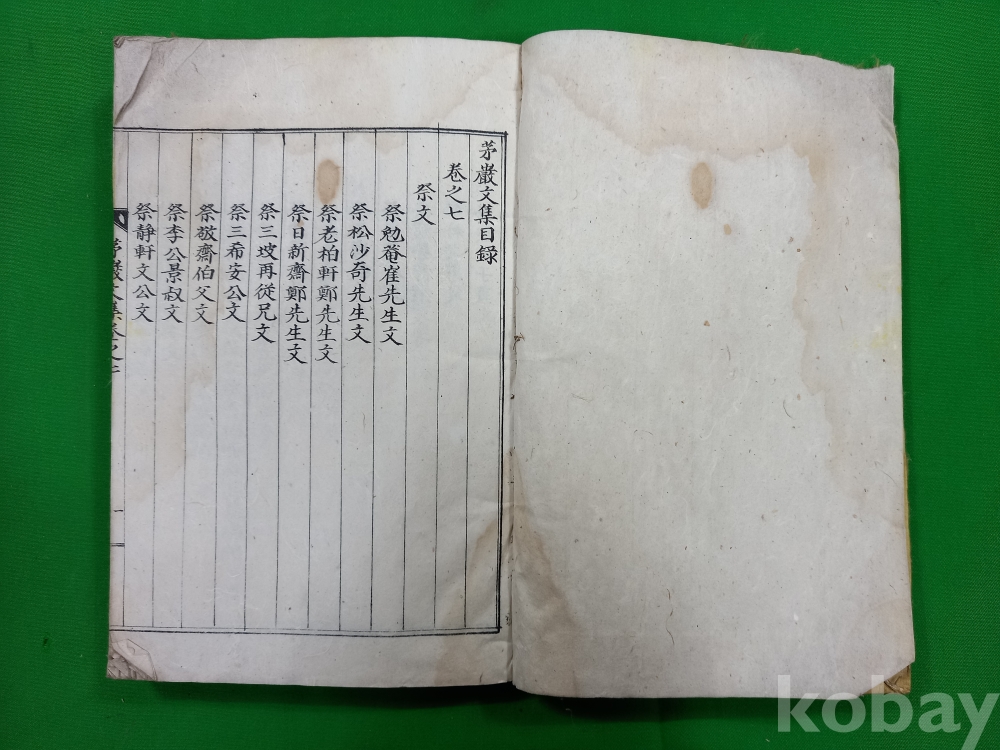 茅巖文集目録
卷之七
祭文
祭勉菴崔先生文
祭松沙奇先生文
祭老柏軒鄭先生文
祭日新齋鄭先生文
祭三坡再從兄文
祭三希安公文
祭敬齋伯父文
祭李公景叔文
祭靜軒文公文
茅巖文集卷之七
一
kobay